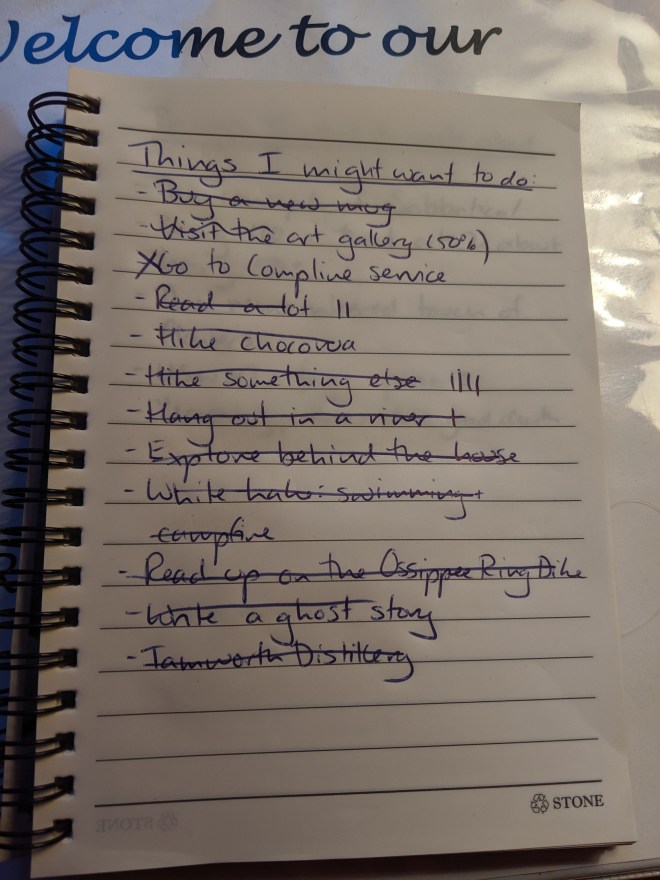 Welcome to our
Things I might want to do:
- Buy a new mug
- Visit the art gallery (50%)
X Go to Compline service
- Read a lot ||
- Hike chocorua
- Hike something else ||||
- Hang out in a river +
- Explore behind the house
- White hake: swimming +
campfire
- Read up on the Ossippee Ring Dike
- Write a ghost story
- Tamworth Distillery
STONE